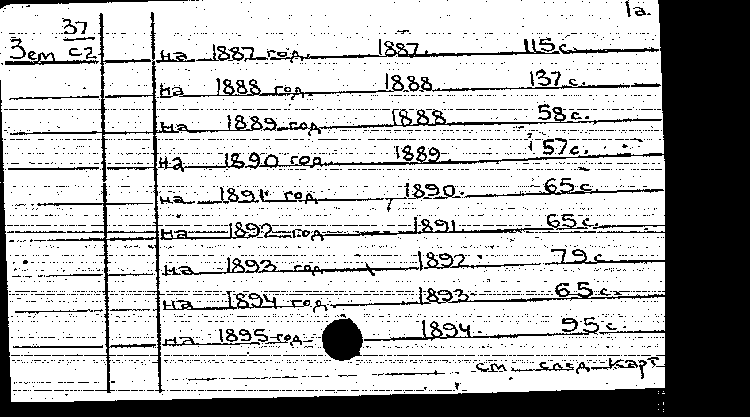 1а.
37
Зем с2 на 1887 год. 1887. 115 с.
на 1888 год. 1888. 137 с.
на 1889 год 1888 58 с.
на 1890 год 1889. 57 с.
на 1891 год 1890. 65 с.
на 1892 год 1891. 65 с.
на 1893 год 1892. 79 с.
на 1894 год. 1893. 65 с.
на 1895 год. 1894. 95 с.
см. след. карт